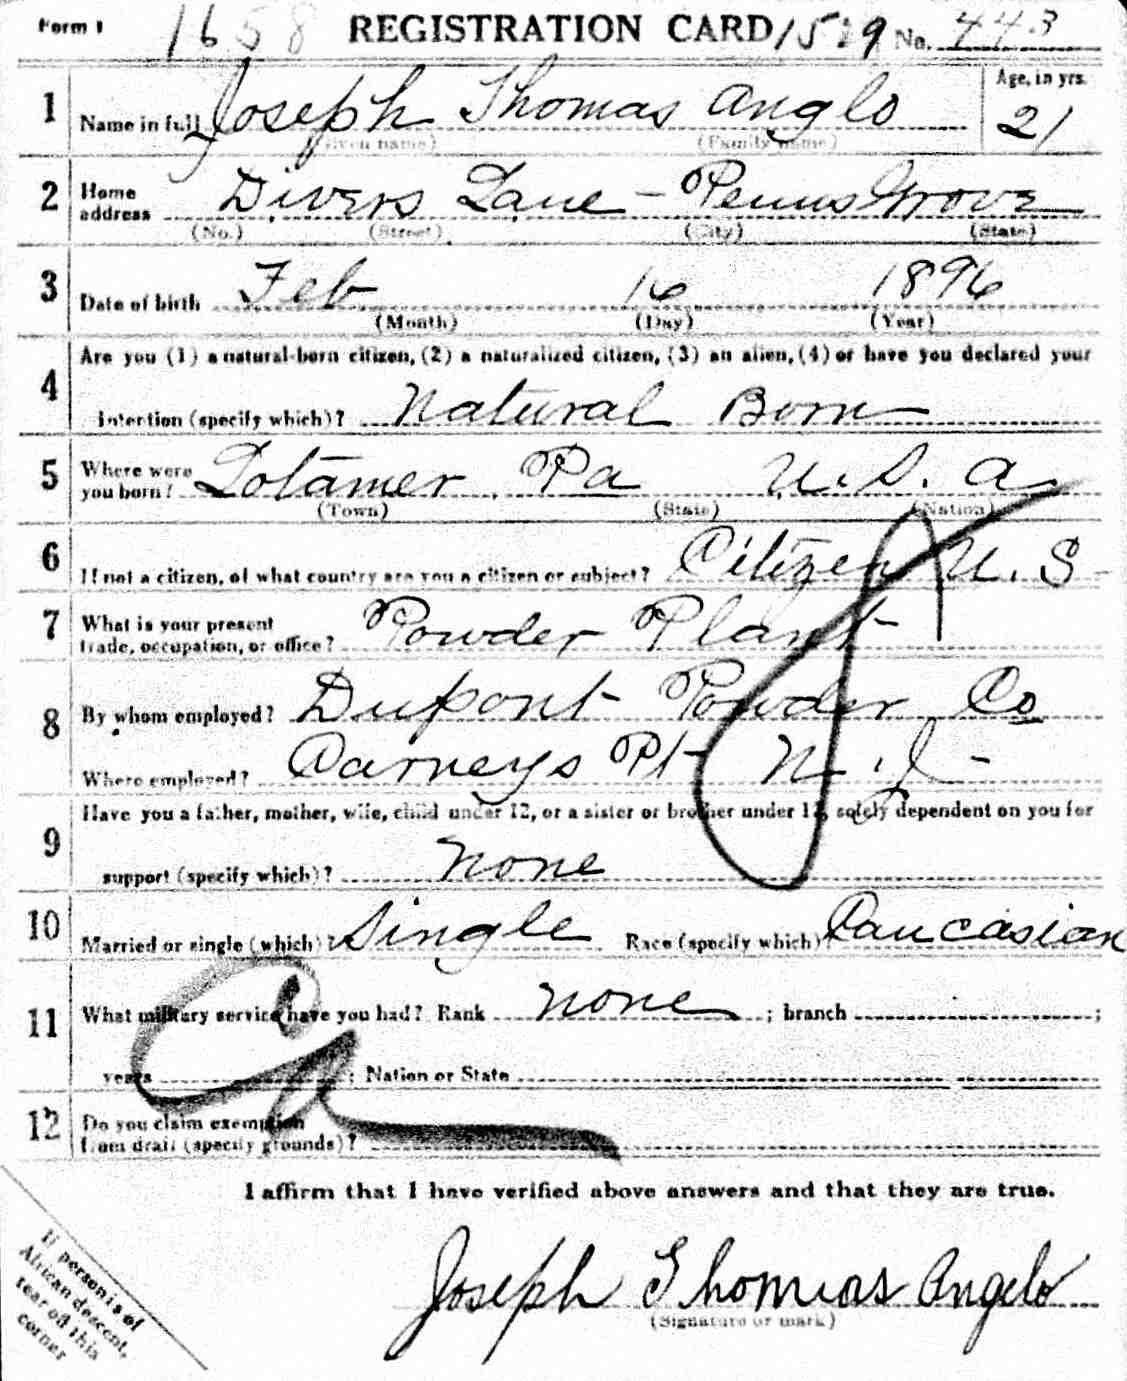 Form 1 1658 REGISTRATION CARD 1519 No. 443
1 Name in full Joseph Thomas Anglo Age, in yrs. 21
(Given name) (Family name)
2 Home address Divers Lane - Penns Grove
(No.) (Street) (City) (State)
3 Date of birth Feb 16 1896
(Month) (Day) (Year)
4 Are you (1) a natural-born citizen, (2) a naturalized citizen, (3) an alien, (4) or have you declared your
intention (specify which)? Natural Born
5 Where were you born? Lotamer Pa U.S.A.
(Town) (State) (Nation)
6 If not a citizen, of what country are you a citizen or subject? Citizen U.S
7 What is your present trade, occupation, or office? Powder Plant
8 By whom employed? Dupont Powder Co
Where employed? Carneys Pt N.J -
9 Have you a father, mother, wife, child under 12, or a sister or brother under 12, solely dependent on you for
support (specify which)? none
10 Married or single (which)? Single Race (specify which)? Caucasian
11 What military service have you had? Rank none ; branch ;
years ; Nation or State
12 Do you claim exemption
from draft (specify grounds)?
I affirm that I have verified above answers and that they are true.
Joseph Thomas Angelo
(Signature or mark)
If person is of
African descent,
tear off this
corner